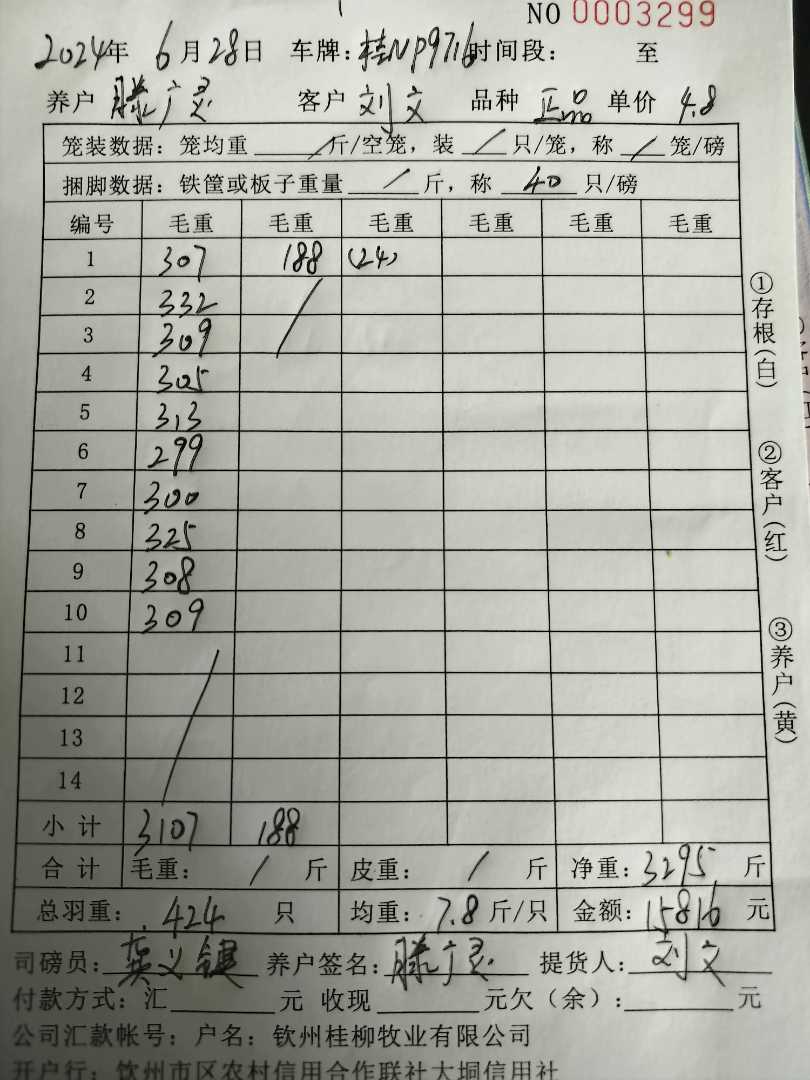 NO 0003299
2024年 6月28日 车牌:桂NP9716 时间段: 至
养户 滕广灵 客户 刘文 品种 正品 单价 4.8
笼装数据:笼均重 / 斤/空笼,装 / 只/笼,称 / 笼/磅
捆脚数据:铁筐或板子重量 / 斤,称 40 只/磅
编号 毛重 毛重 毛重 毛重 毛重 毛重
1 307 188 (24)
2 332 /
3 309
4 305
5 313
6 299
7 300
8 325
9 308
10 309
11 /
12
13
14
小计 3107 188
合计 毛重: / 斤 皮重: / 斤 净重:3295 斤
总羽重:424 只 均重:7.8 斤/只 金额:15816 元
司磅员: 义键 养户签名:滕广灵 提货人:刘文
付款方式:汇 元 收现 元欠(余): 元
公司汇款帐号:户名:钦州桂柳牧业有限公司
开户行:钦州市区农村信用合作联社大垌信用社
①存根(白)
②客户(红)
③养户(黄)